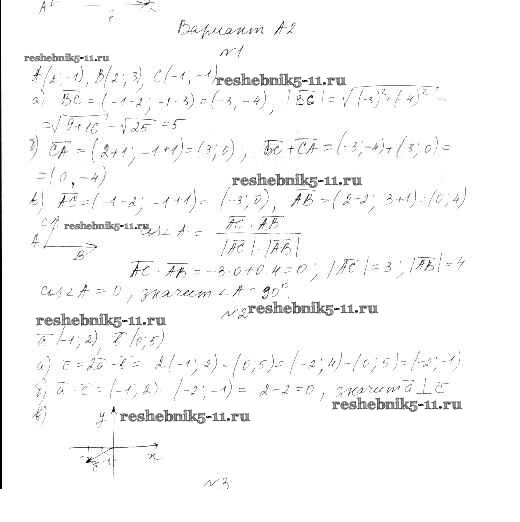 Вариант А2
№1
reshebnik5-11.ru
A(2;-1), B(2;3), C(-1,-1)
reshebnik5-11.ru
a) BC = (-1-2; -1-3) = (-3,-4), |BC| = √((-3)²+(-4)²) =
= √(9+16) = √25 = 5
б) CA = (2+1; -1+1) = (3; 0), BC + CA = (-3;-4) + (3; 0) =
= (0,-4)
reshebnik5-11.ru
в) AC = (-1-2; -1+1) = (-3; 0), AB = (2-2; 3+1) = (0; 4)
C
reshebnik5-11.ru
A
B
cos∠A = AC · AB / |AC| · |AB|
AC · AB = -3·0+0·4=0; |AC| = 3; |AB| = 4
cos∠A = 0, значит ∠A = 90°.
№2
reshebnik5-11.ru
reshebnik5-11.ru
a (-1; 2), (0; 5)
a) c = 2a - = 2(-1; 2) - (0; 5) = (-2; 4) - (0; 5) = (-2; -1)
б) a · c = (-1; 2) · (-2; -1) = 2-2=0, значит a ⊥ c
reshebnik5-11.ru
в)
y
reshebnik5-11.ru
x
№3